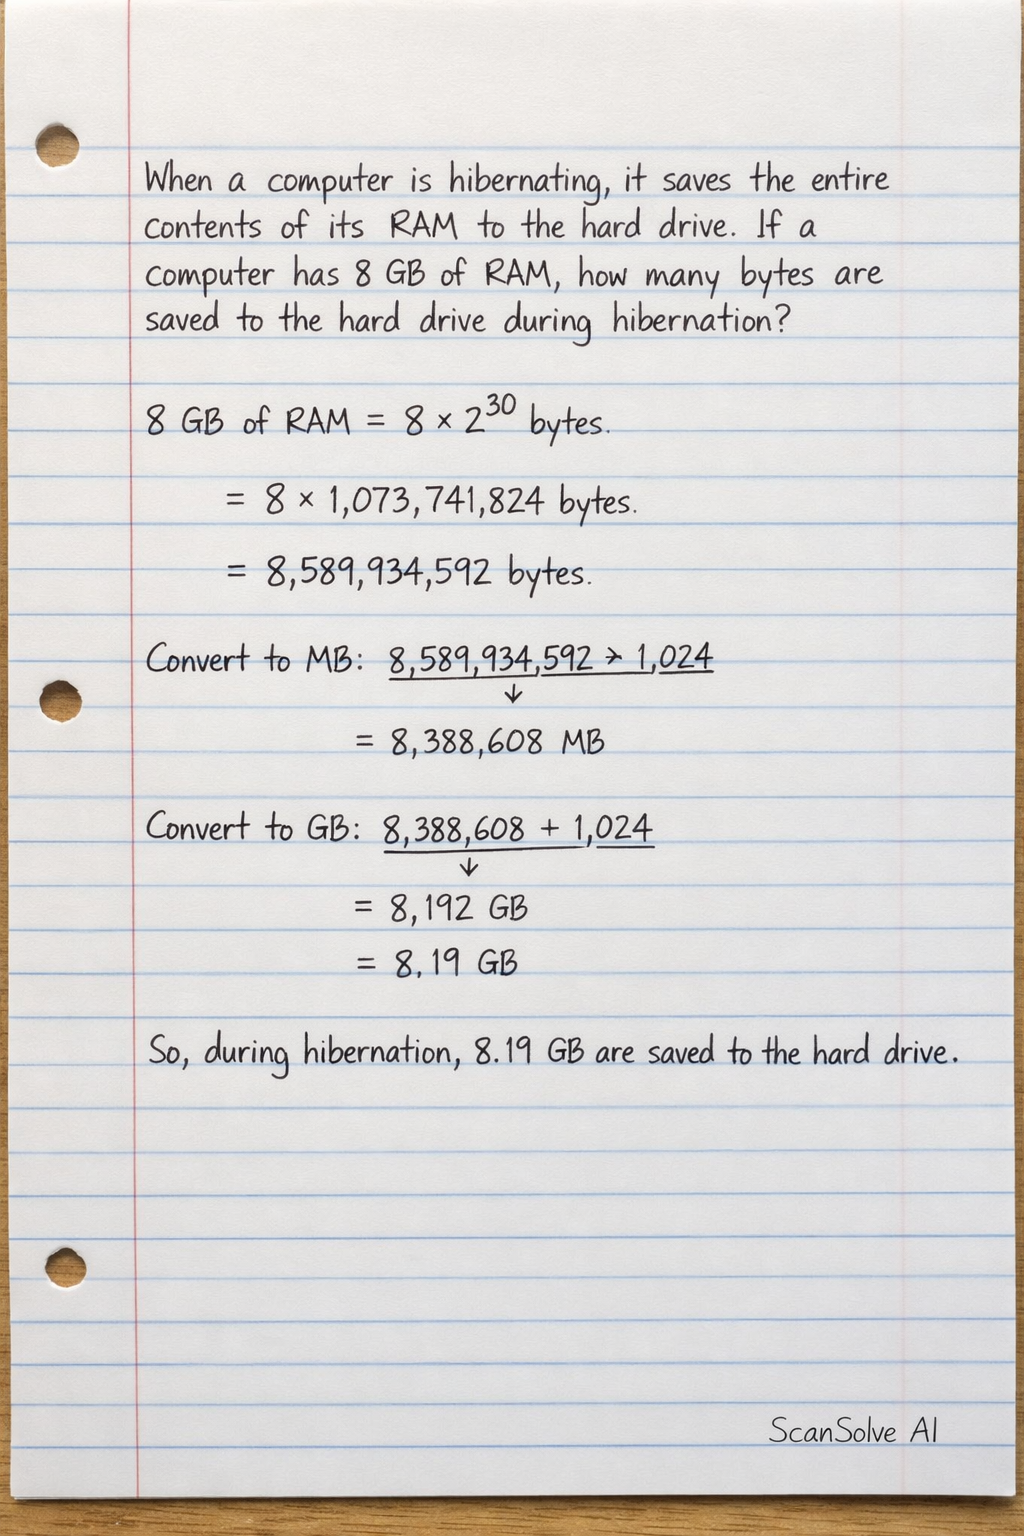 When a computer is hibernating, it saves the entire
contents of its RAM to the hard drive. If a
computer has 8 GB of RAM, how many bytes are
saved to the hard drive during hibernation?
8 GB of RAM = 8 × 2³⁰ bytes.
= 8 × 1,073,741,824 bytes.
= 8,589,934,592 bytes.
Convert to MB: 8,589,934,592 > 1,024
↓
= 8,388,608 MB
Convert to GB: 8,388,608 + 1,024
↓
= 8,192 GB
= 8.19 GB
So, during hibernation, 8.19 GB are saved to the hard drive.
ScanSolve AI